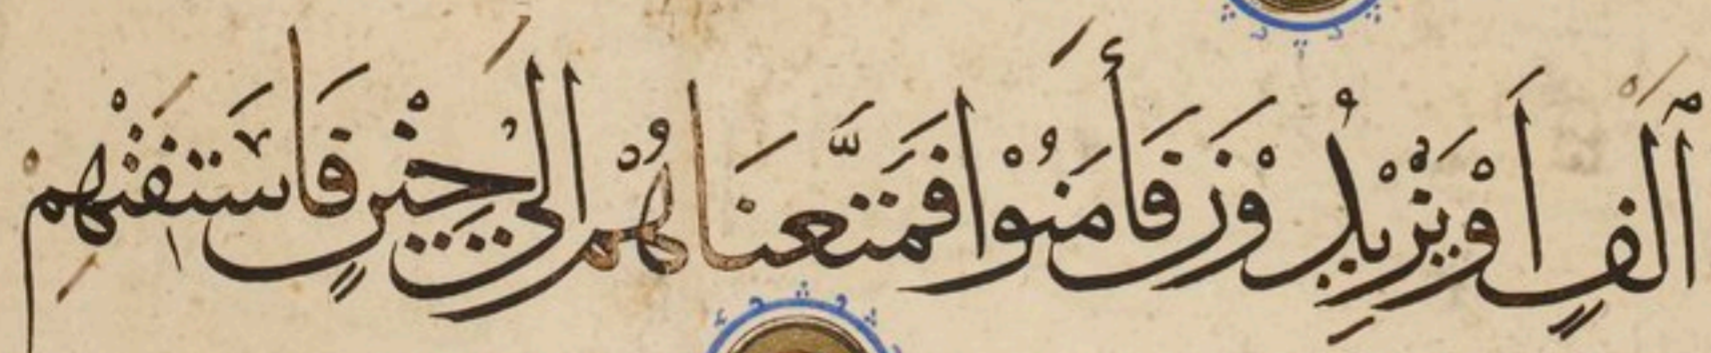 أَلْفٍ أَوْ يَزِيْدُوْنَ فَأَمَنُوْا فَمَتَّعْنَاهُمْ إِلَى حِيْنٍ فَاسْتَفْتِهِمْ